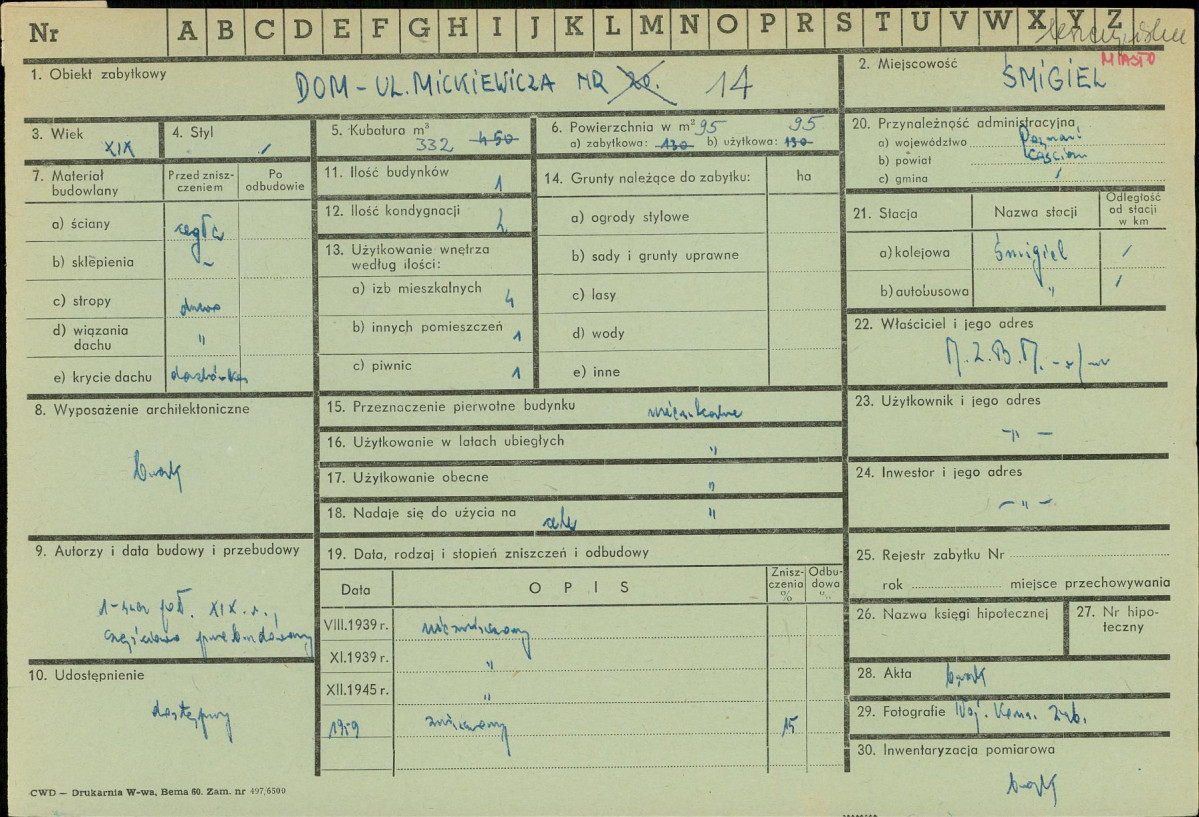 Nr A B C D E F G H I J K L M N O P R S T U V W X Y Z
1. Obiekt zabytkowy
DOM - UL. MICKIEWICZA NR 20. 14
2. Miejscowość
MIASTO
ŚMIGIEL
3. Wiek
XIX
4. Styl
/
5. Kubatura m³
332 450
6. Powierzchnia w m² 95 95
a) zabytkowa: 130 b) użytkowa: 130
20. Przynależność administracyjna
a) województwo Poznań
b) powiat Kościan
c) gmina /
7. Materiał budowlany
Przed zniszczeniem
Po odbudowie
a) ściany cegła
b) sklepienia –
c) stropy drewno
d) wiązania dachu "
e) krycie dachu dachówka
11. Ilość budynków 1
12. Ilość kondygnacji 2
13. Użytkowanie wnętrza
według ilości:
a) izb mieszkalnych 4
b) innych pomieszczeń 1
c) piwnic 1
14. Grunty należące do zabytku: ha
a) ogrody stylowe
b) sady i grunty uprawne
c) lasy
d) wody
e) inne
21. Stacja
Nazwa stacji
Odległość od stacji w km
a) kolejowa Śmigiel /
b) autobusowa " /
22. Właściciel i jego adres
M.Z.B.M.
23. Użytkownik i jego adres
– " –
24. Inwestor i jego adres
– " –
8. Wyposażenie architektoniczne
brak
15. Przeznaczenie pierwotne budynku mieszkalne
16. Użytkowanie w latach ubiegłych "
17. Użytkowanie obecne "
18. Nadaje się do użycia na cele "
9. Autorzy i data budowy i przebudowy
1-sza poł. XIX w.,
częściowo przebudowany
10. Udostępnienie
dostępny
19. Data, rodzaj i stopień zniszczeń i odbudowy
Data OPIS Zniszczenia % Odbudowa %
VIII.1939 r. niezniszczony
XI.1939 r. "
XII.1945 r. "
1959 zniszczony 15
25. Rejestr zabytku Nr
rok miejsce przechowywania
26. Nazwa księgi hipotecznej
27. Nr hipoteczny
28. Akta brak
29. Fotografie Woj. Kons. Zab.
30. Inwentaryzacja pomiarowa
brak
CWD – Drukarnia W-wa, Bema 60. Zam. nr 497/6500